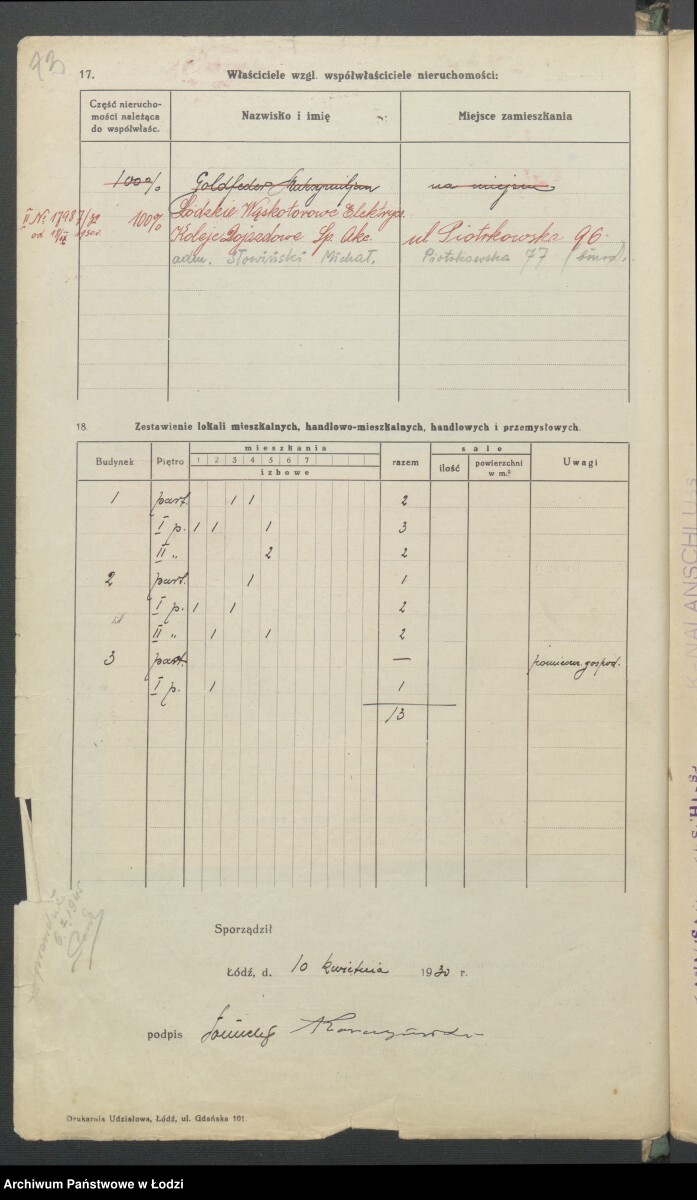 93
17. Właściciele wzgl. współwłaściciele nieruchomości:
Część nierucho-
mości należąca
do współwłaśc.
Nazwisko i imię
Miejsce zamieszkania
100% Goldfeder Maksymiljan na miejscu
II № 1798 7/32 100% Łódzkie Wąskotorowe Elektrycz.
Koleje Dojazdowe Sp. Akc. ul Piotrkowska 96.
adm. Słowiński Michał. Piotrkowska 77
18. Zestawienie lokali mieszkalnych, handlowo-mieszkalnych, handlowych i przemysłowych.
Budynek Piętro mieszkania razem sale Uwagi
1 2 3 4 5 6 7
izbowe
ilość powierzchni
w m.²
1 part. 1 1 2
I p. 1 1 1 3
II „ 2 2
2 part. 1 1
I p. 1 1 2
II „ 1 1 2
3 part. — pomieszcz. gospod.
I p. 1 1
13
Sporządził
Łódź, d. 10 kwietnia 1930 r.
podpis
Drukarnia Udziałowa, Łódź, ul. Gdańska 101.
KANALANSCHLUSS
Archiwum Państwowe w Łodzi